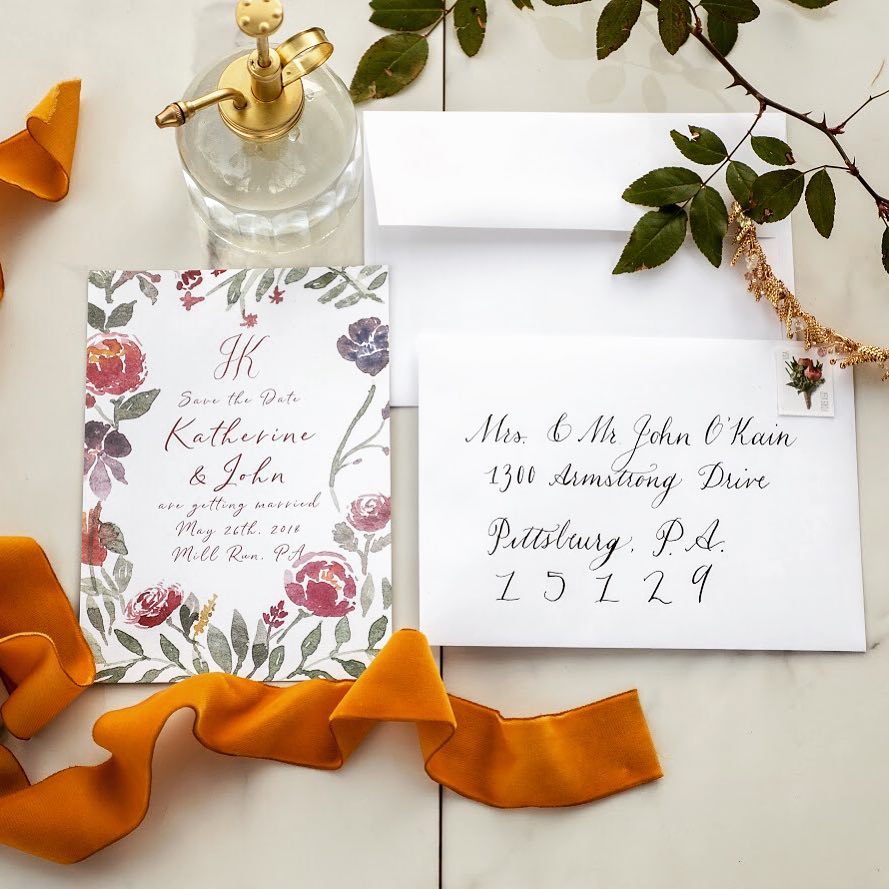 JK
Save the Date
Katherine
& John
are getting married
May 26th, 2018
Mill Run, PA
Mrs. & Mr. John O'Kain
1300 Armstrong Drive
Pittsburg, P.A.
15129